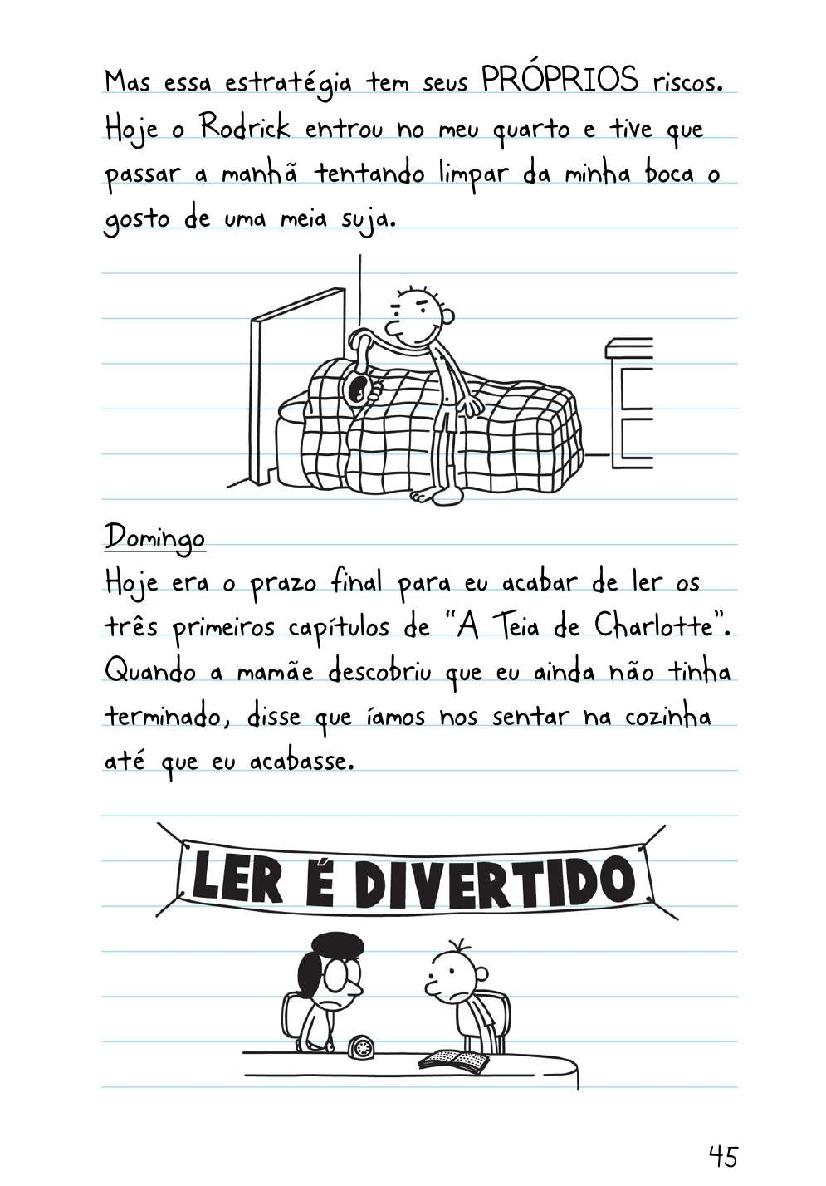 Mas essa estratégia tem seus PRÓPRIOS riscos.
Hoje o Rodrick entrou no meu quarto e tive que
passar a manhã tentando limpar da minha boca o
gosto de uma meia suja.
Domingo
Hoje era o prazo final para eu acabar de ler os
três primeiros capítulos de "A Teia de Charlotte".
Quando a mamãe descobriu que eu ainda não tinha
terminado, disse que íamos nos sentar na cozinha
até que eu acabasse.
LER É DIVERTIDO
45